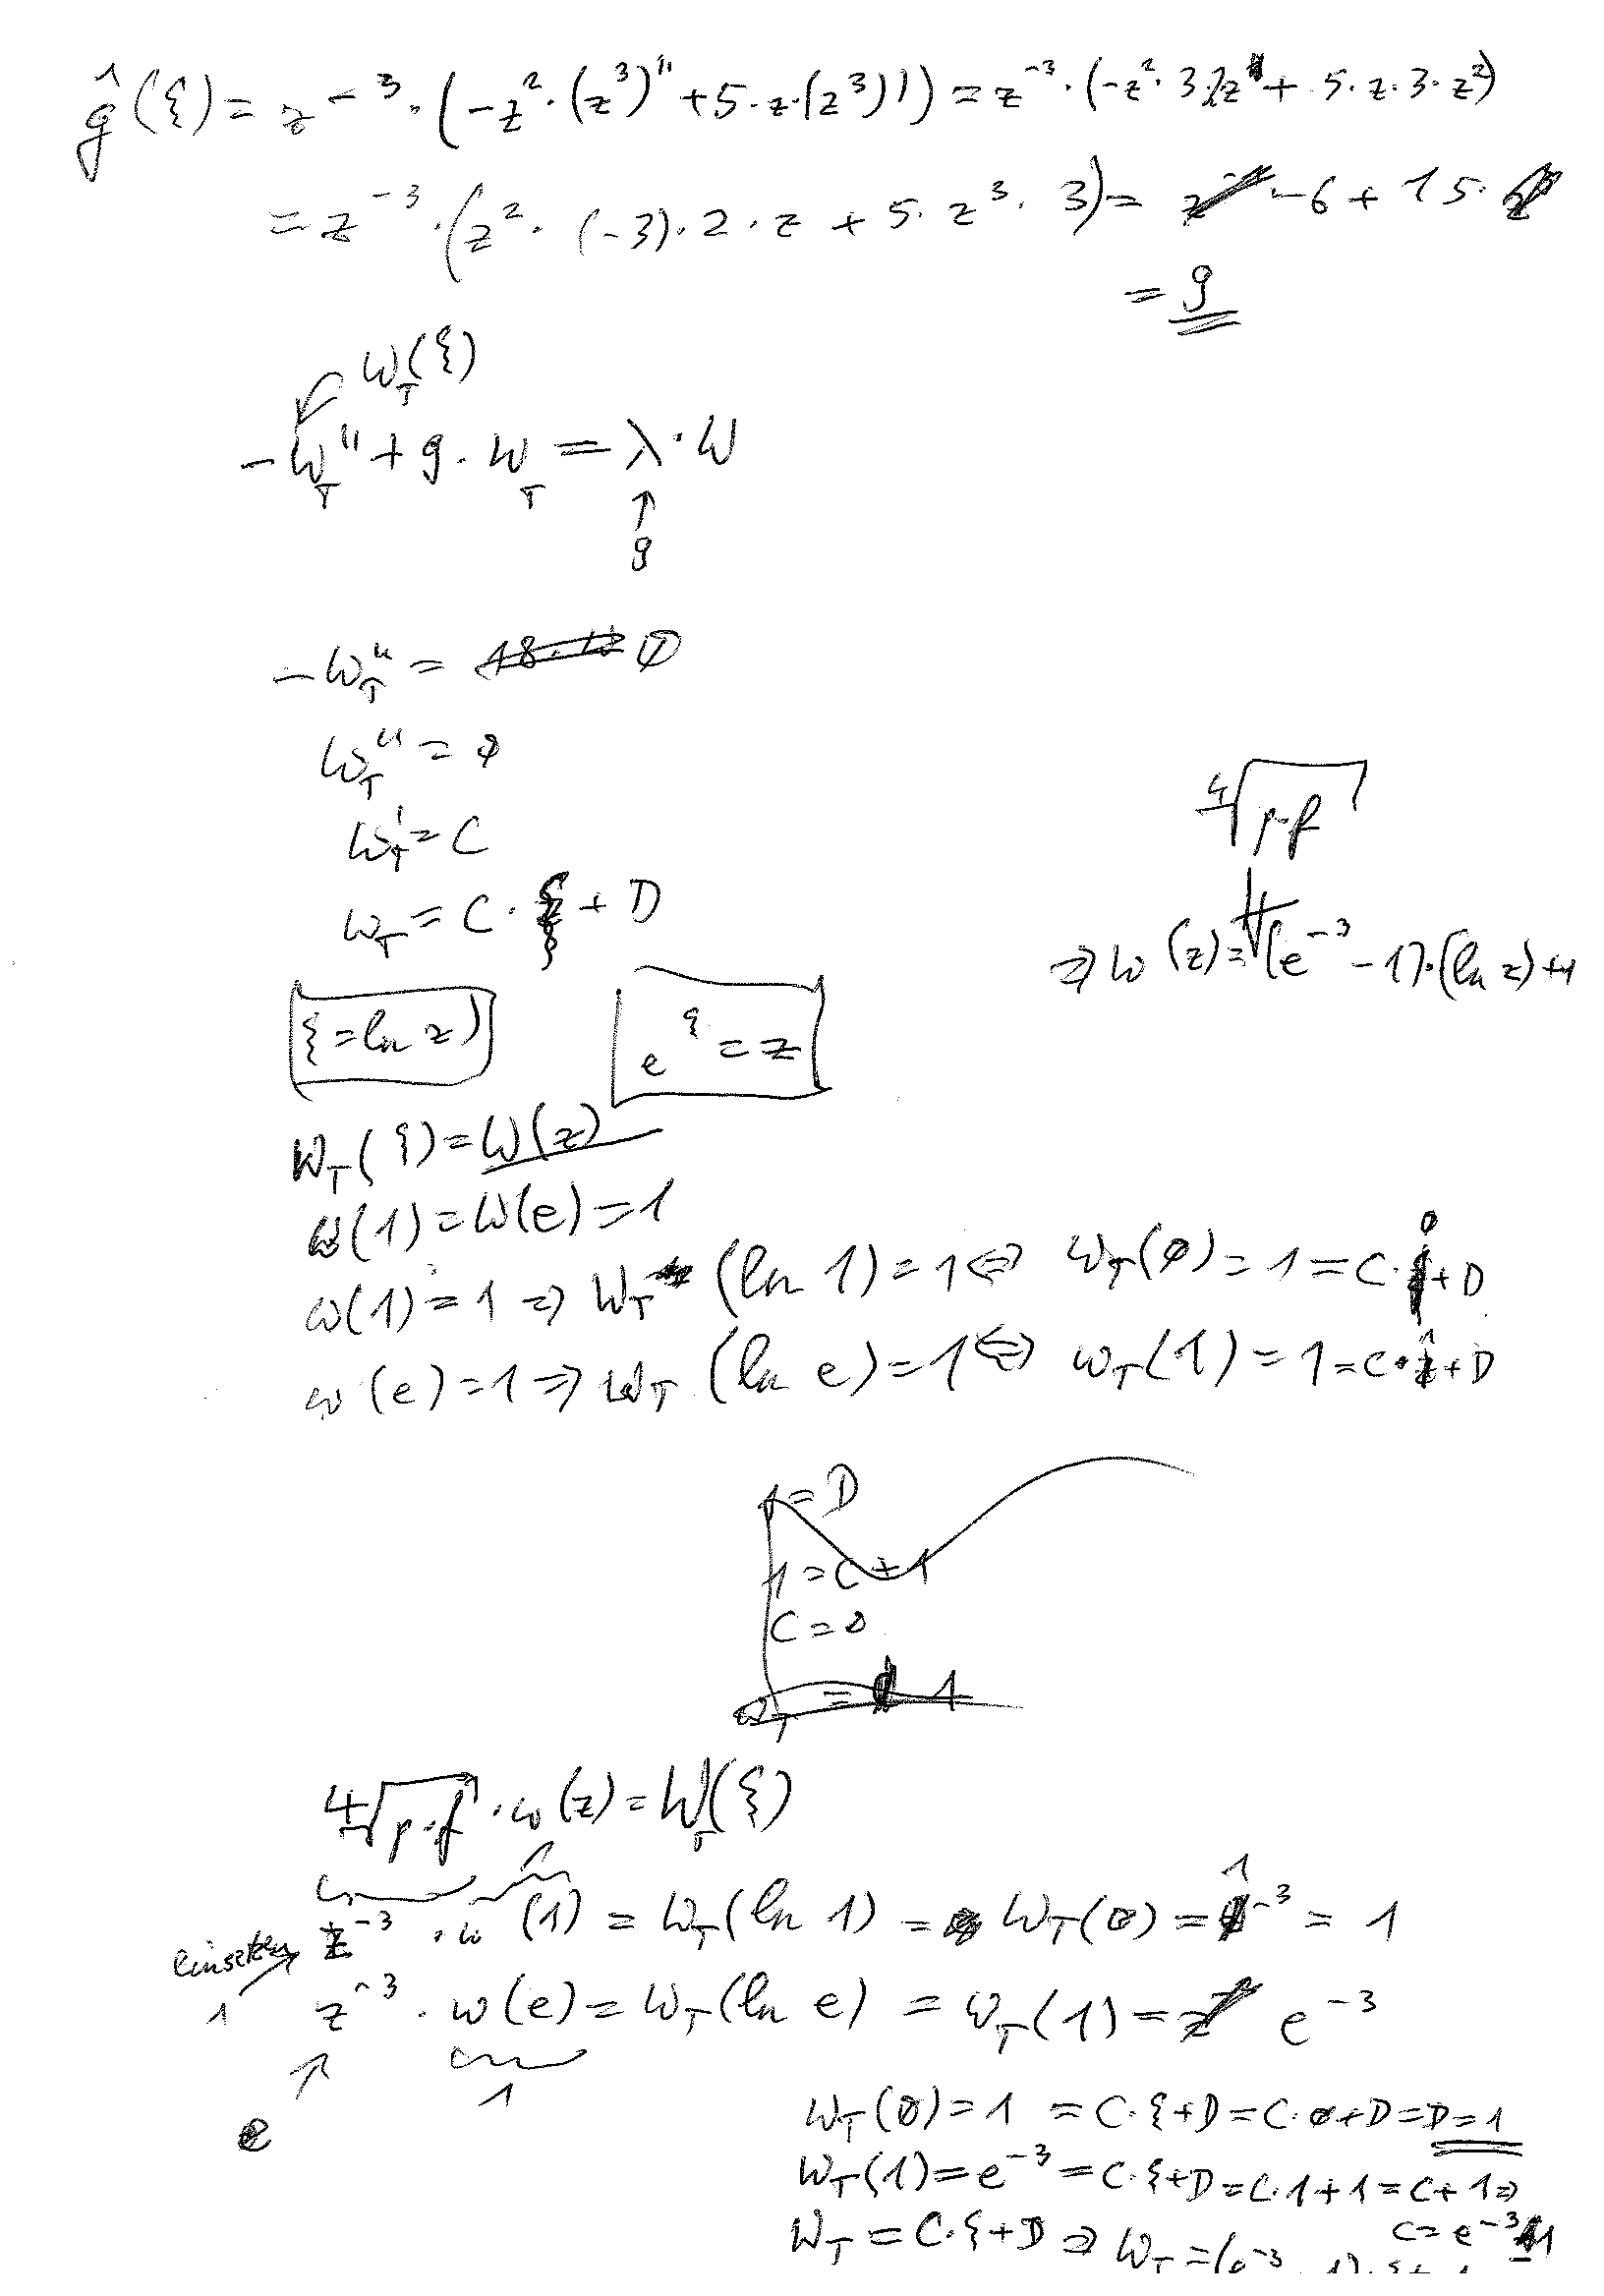 ĝ(ξ) = z⁻³ · (-z² · (z³)'' + 5 · z · (z³)') = z⁻³ · (-z² · 3 · 2z + 5 · z · 3 · z²)
= z⁻³ · (z² · (-3) · 2 · z + 5 · z³ · 3) = -6 + 15 ·
= 9
w_T(ξ)
-w_T'' + 9 · w_T = λ · w
↑
9
-w_T'' = 0
w_T'' = 0
w_T' = C
w_T = C · ξ + D
∜(p·f)
⇒ w(z) = (e⁻³ - 1) · (ln z) + 1
ξ = ln z
e^ξ = z
w_T(ξ) = w(z)
w(1) = w(e) = 1
w(1) = 1 ⇒ w_T (ln 1) = 1 ⇔ w_T(0) = 1 = C · 0 + D
w(e) = 1 ⇒ w_T (ln e) = 1 ⇔ w_T(1) = 1 = C · 1 + D
1 = D
1 = C + 1
C = 0
w_T = 1
∜(p·f) · w(z) = w_T(ξ)
z⁻³ · w(1) = w_T(ln 1) = w_T(0) = 1⁻³ = 1
einsetzen
1
z⁻³ · w(e) = w_T(ln e) = w_T(1) = e⁻³
↑
e
1
w_T(0) = 1 = C · ξ + D = C · 0 + D = D = 1
w_T(1) = e⁻³ = C · ξ + D = C · 1 + 1 = C + 1 ⇒
C = e⁻³ - 1
w_T = C · ξ + D ⇒ w_T = (e⁻³ - 1) · ξ + 1